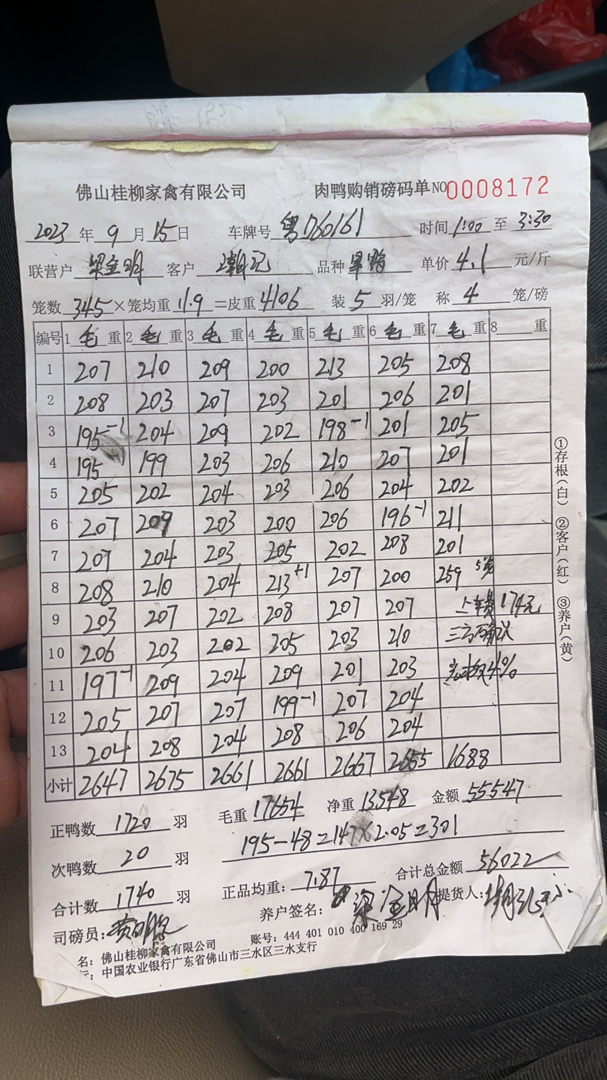 佛山桂柳家禽有限公司 肉鸭购销磅码单 NO 0008172
2023 年 9 月 15 日 车牌号 粤 760161 时间 1:00 至 3:30
联营户 梁金明 客户 潮记 品种 单价 4.1 元/斤
笼数 345 ×笼均重 11.9 =皮重 4106 装 5 羽/笼 称 4 笼/磅
编号 1 毛 重 2 毛 重 3 毛 重 4 毛 重 5 毛 重 6 毛 重 7 毛 重 8 重
1 207 210 209 200 213 205 208
2 208 203 207 203 201 206 201
3 195-1 204 209 202 198-1 201 205
4 195-1 199 203 206 210 207 201
5 205 202 204 203 206 204 202
6 207 209 203 200 206 196-1 211
7 207 204 203 205 202 208 201
8 208 210 204 213+1 207 200 259
9 203 207 202 208 207 207 上车费174元
10 206 203 202 205 203 210 三方确认
11 197-1 209 204 209 201 203 4%
12 205 207 207 199-1 207 204
13 204 208 204 208 206 204
小计 2647 2675 2661 2661 2667 2655 1688
正鸭数 1720 羽 毛重 17654 净重 13548 金额 55547
次鸭数 20 羽 195-48=147×2.05=301
合计数 1740 羽 正品均重: 7.87 合计总金额 56022
司磅员: 养户签名: 梁金明 提货人:
名: 佛山桂柳家禽有限公司 账号: 444 401 010 400 169 29
行: 中国农业银行广东省佛山市三水区三水支行
①存根(白) ②客户(红) ③养户(黄)